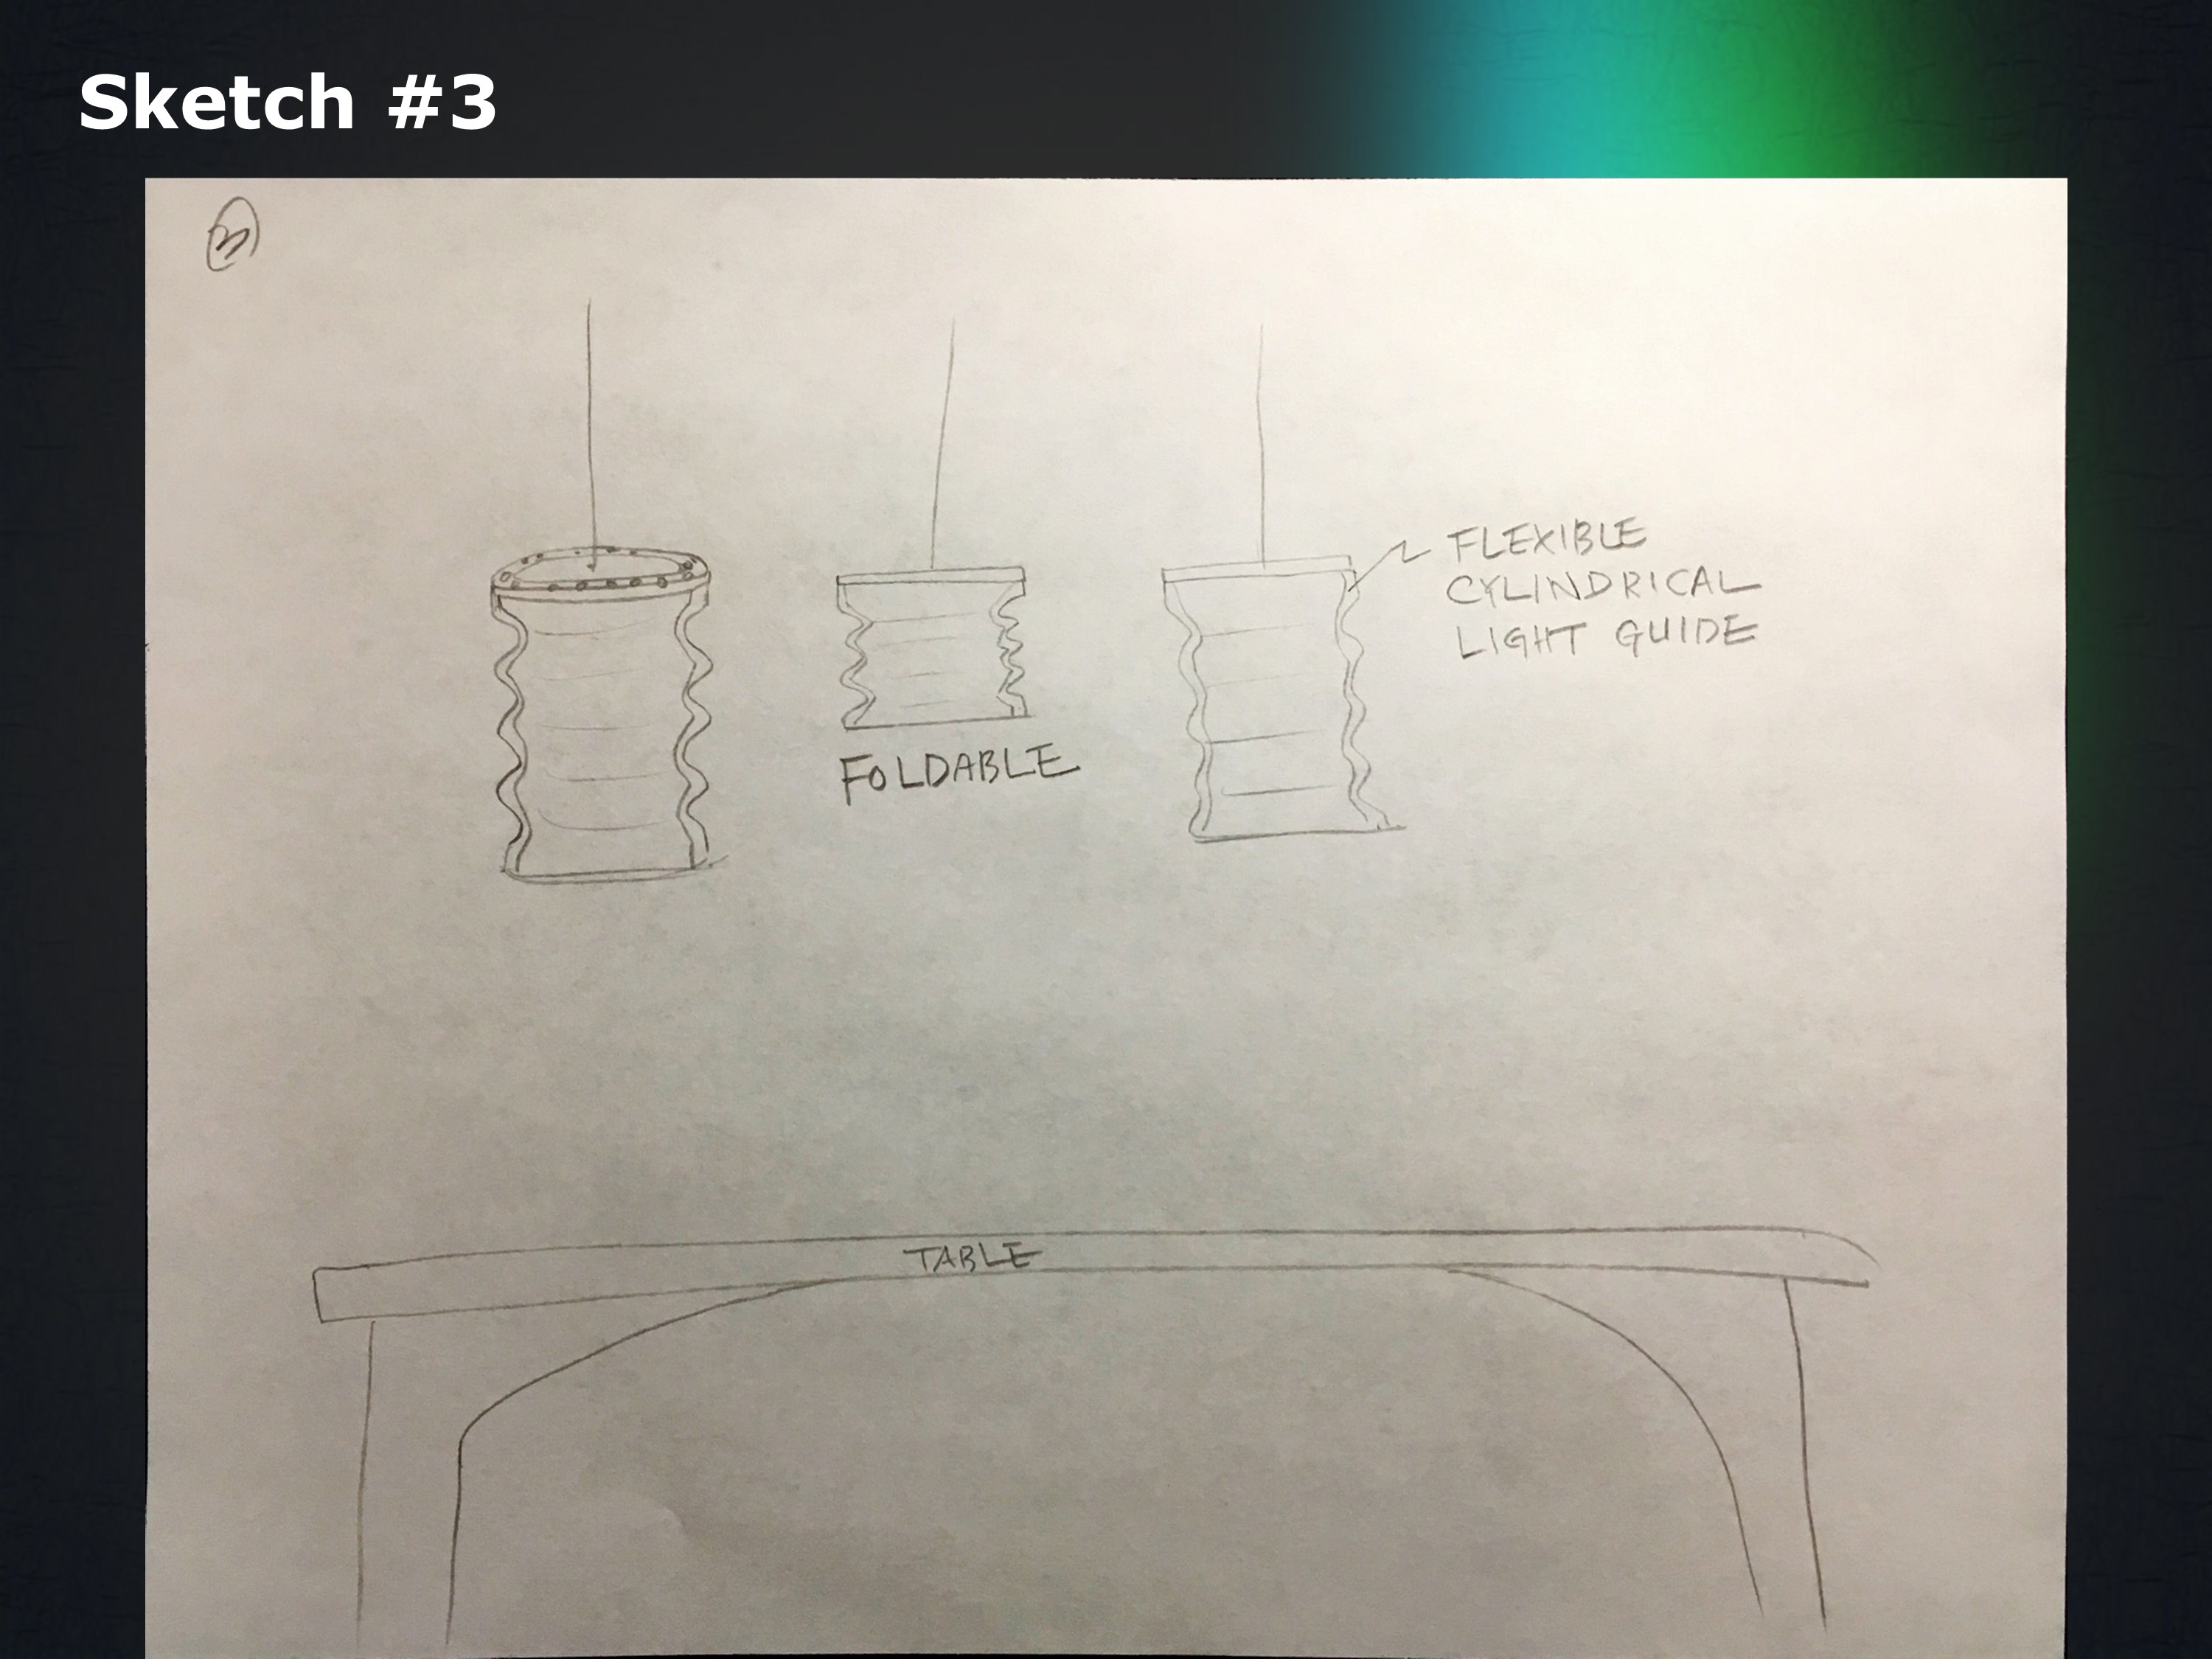 Sketch #3
3
FLEXIBLE
CYLINDRICAL
LIGHT GUIDE
FOLDABLE
TABLE